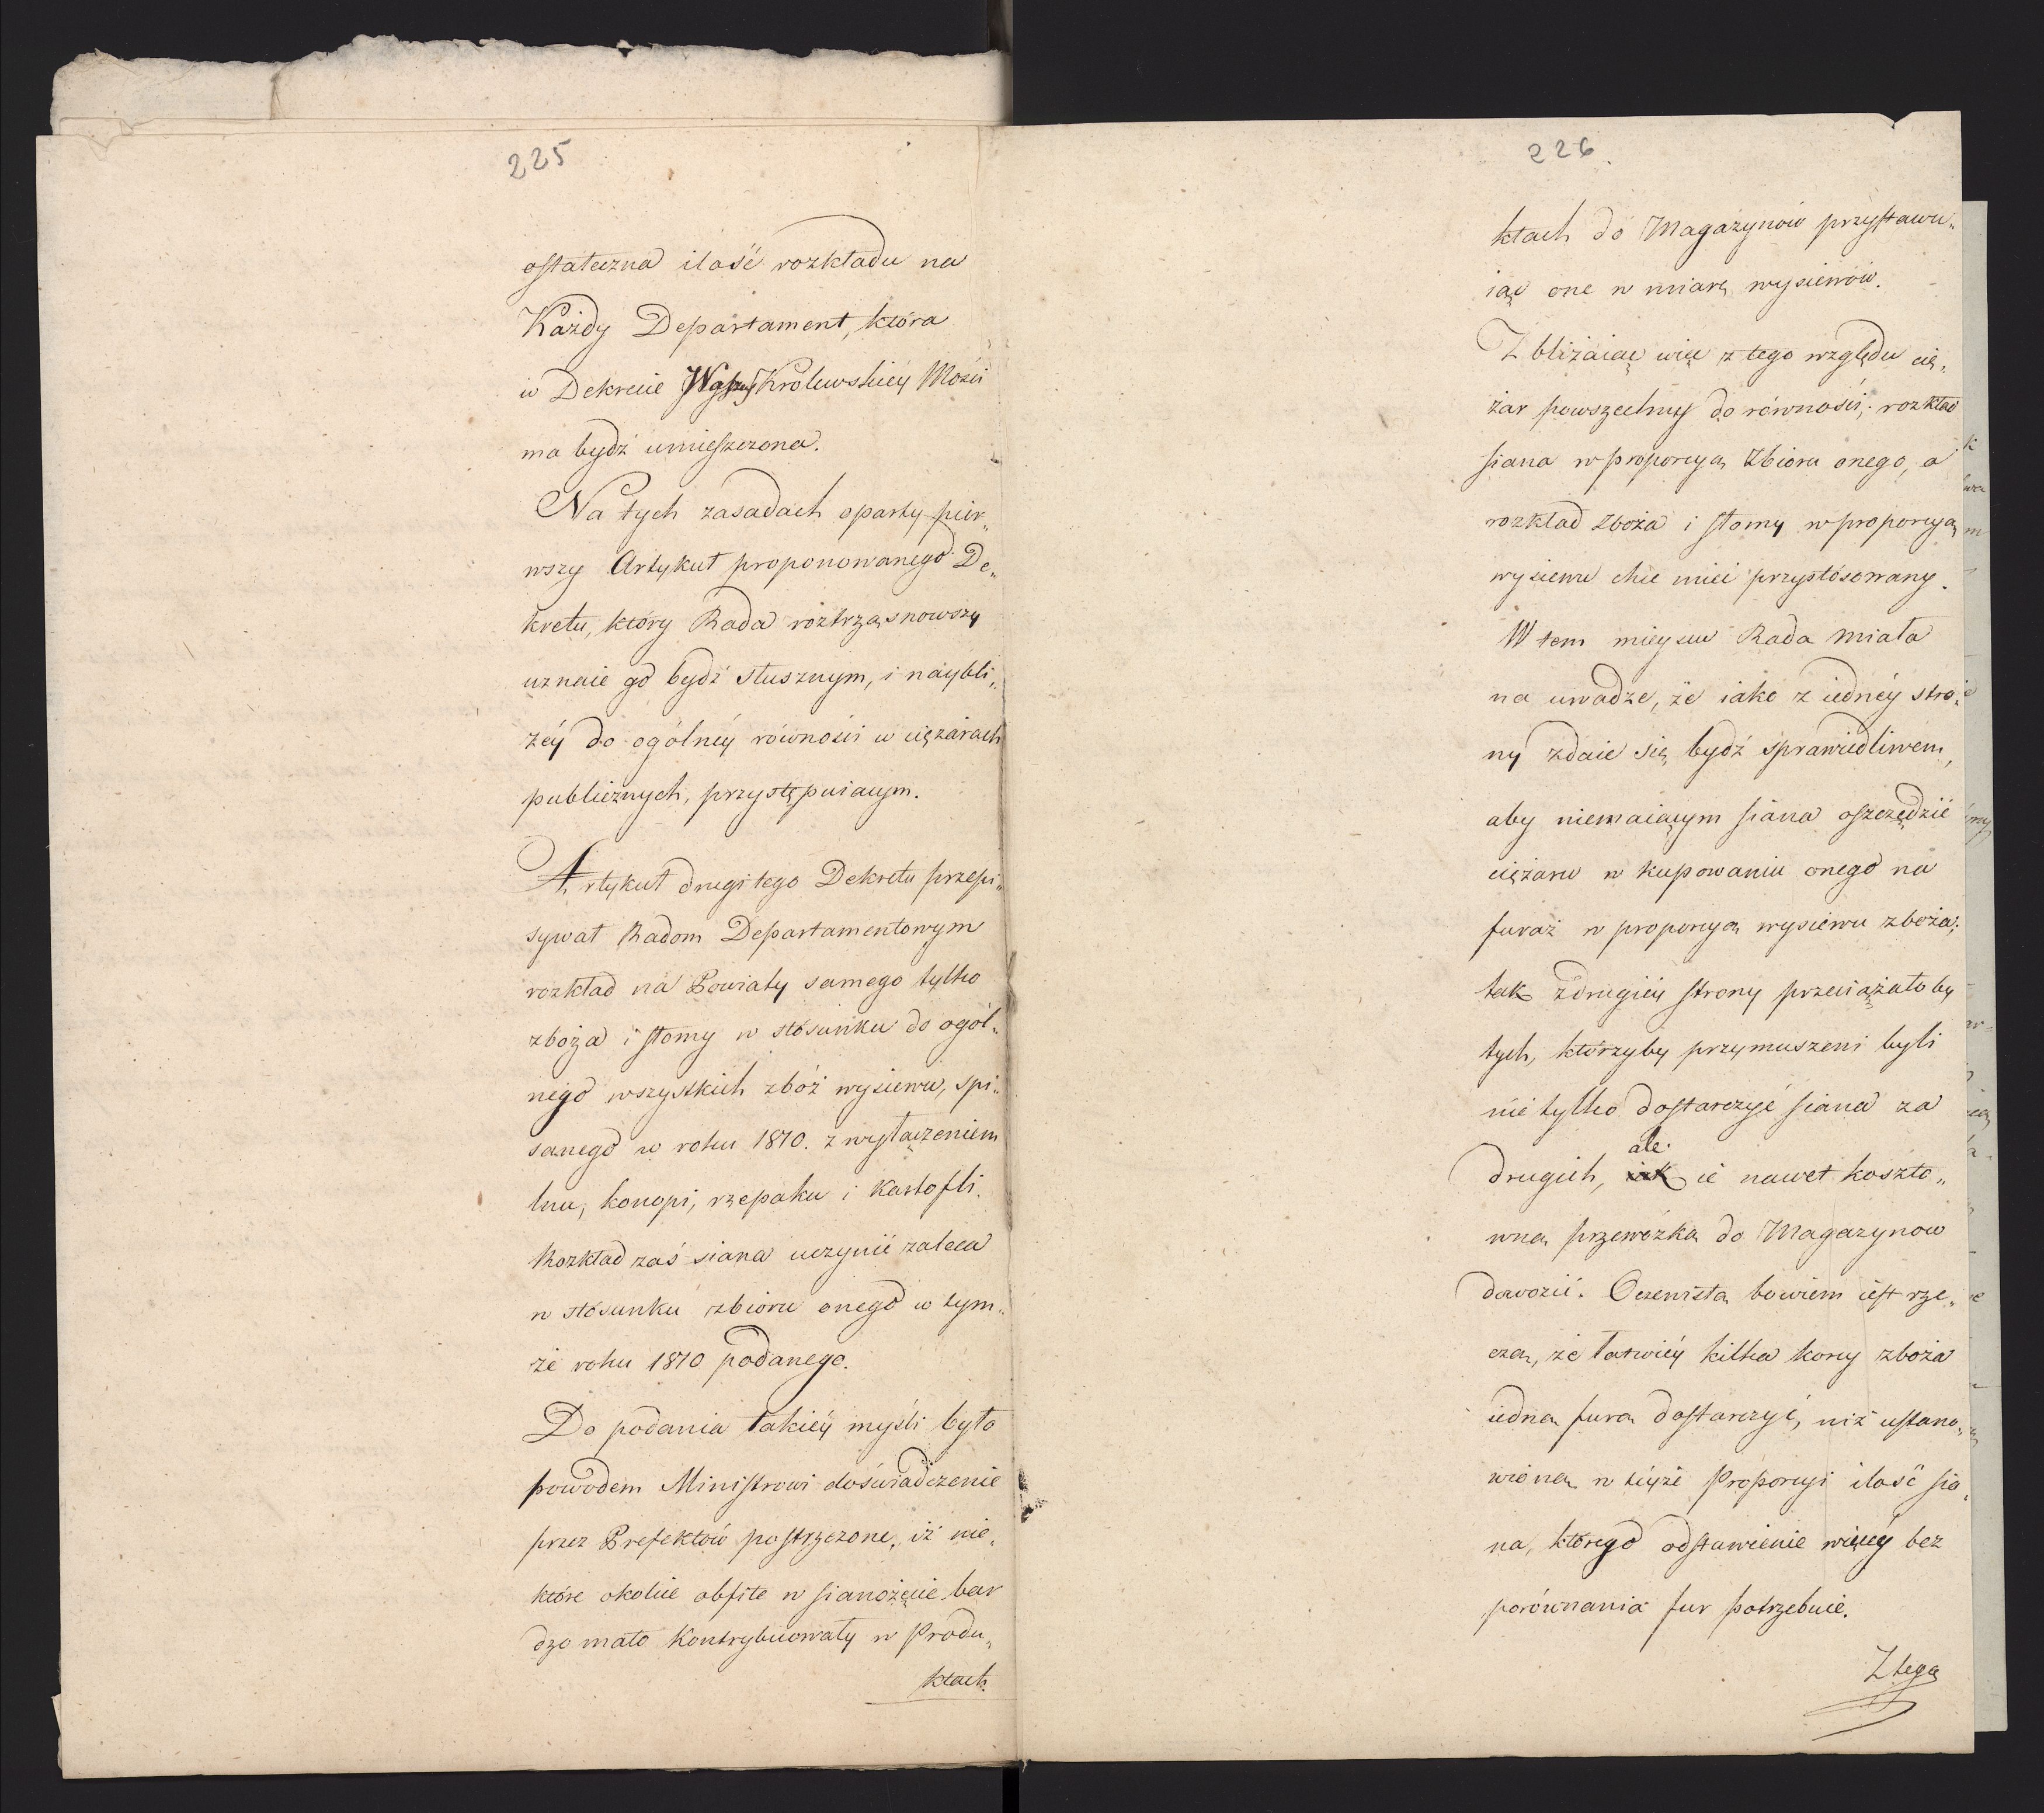 225
ostateczna ilość rozkładu na
Każdy Departament, która
w Dekrecie Waszey Krolewskiéy Mości
ma bydź umieszczona.
Na tych zasadach oparty pier„
wszy Artykuł proponowanego De„
kretu, który Rada roztrząsnowszy
uznaie go bydź słusznym, i naybli„
żéy do ogólnéy równości w ciężarach
publicznych, przystępuiącym.
Artykuł drugi tego Dekretu przepi„
sywał Radom Departamentowym
rozkład na Powiaty samego tylko
zboża i słomy w stósunku do ogól„
nego wszystkich zbóż wysiewu, spi„
sanego w roku 1810. z wyłączeniem
lnu, konopi, rzepaku i kartofli.
Rozkład zaś siana uczynić zaleca
w stósunku zbioru onego w tym„
że roku 1810 podanego.
Do podania takiéy myśli było
powodem Ministrowi doświadczenie
przez Prefektów postrzeżone, iż nie„
które okolice obfite w sianożęcie bar
dzo mało kontrybuowały w Produ„
ktach.
226.
ktach do Magazynów przystawu„
iąc one w miarę wysiewów.
Zbliżaiąc więc z tego względu cię„
żar powszechny do równości; rozkład
siana w proporcyą zbioru onego, a
rozkład zboża i słomy w proporcyą
wysiewu chce mieć przystósowany.
W tem mieyscu Rada miała
na uwadze, że iako z iednéy stro„
ny zdaie się bydź sprawiedliwem,
aby niemaiącym siana oszczędzić
ciężaru w kupowaniu onego na
furaż w proporcyą wysiewu zboża;
tak z drugiéy strony przeciążałoby
tych, którzyby przymuszeni byli
nie tylko dostarczyć siana za
drugich, ale ie nawet koszto„
wną przewózką do Magazynow
dowozić. Oczewistą bowiem iest rze„
czą, że łatwiéy kilka korcy zboża
iedną furą dostarczyć, niż ustano„
wioną w téyże Proporcyi ilość sia„
na, którego odstawienie więcéy bez
porównania fur potrzebuie.
Z tego